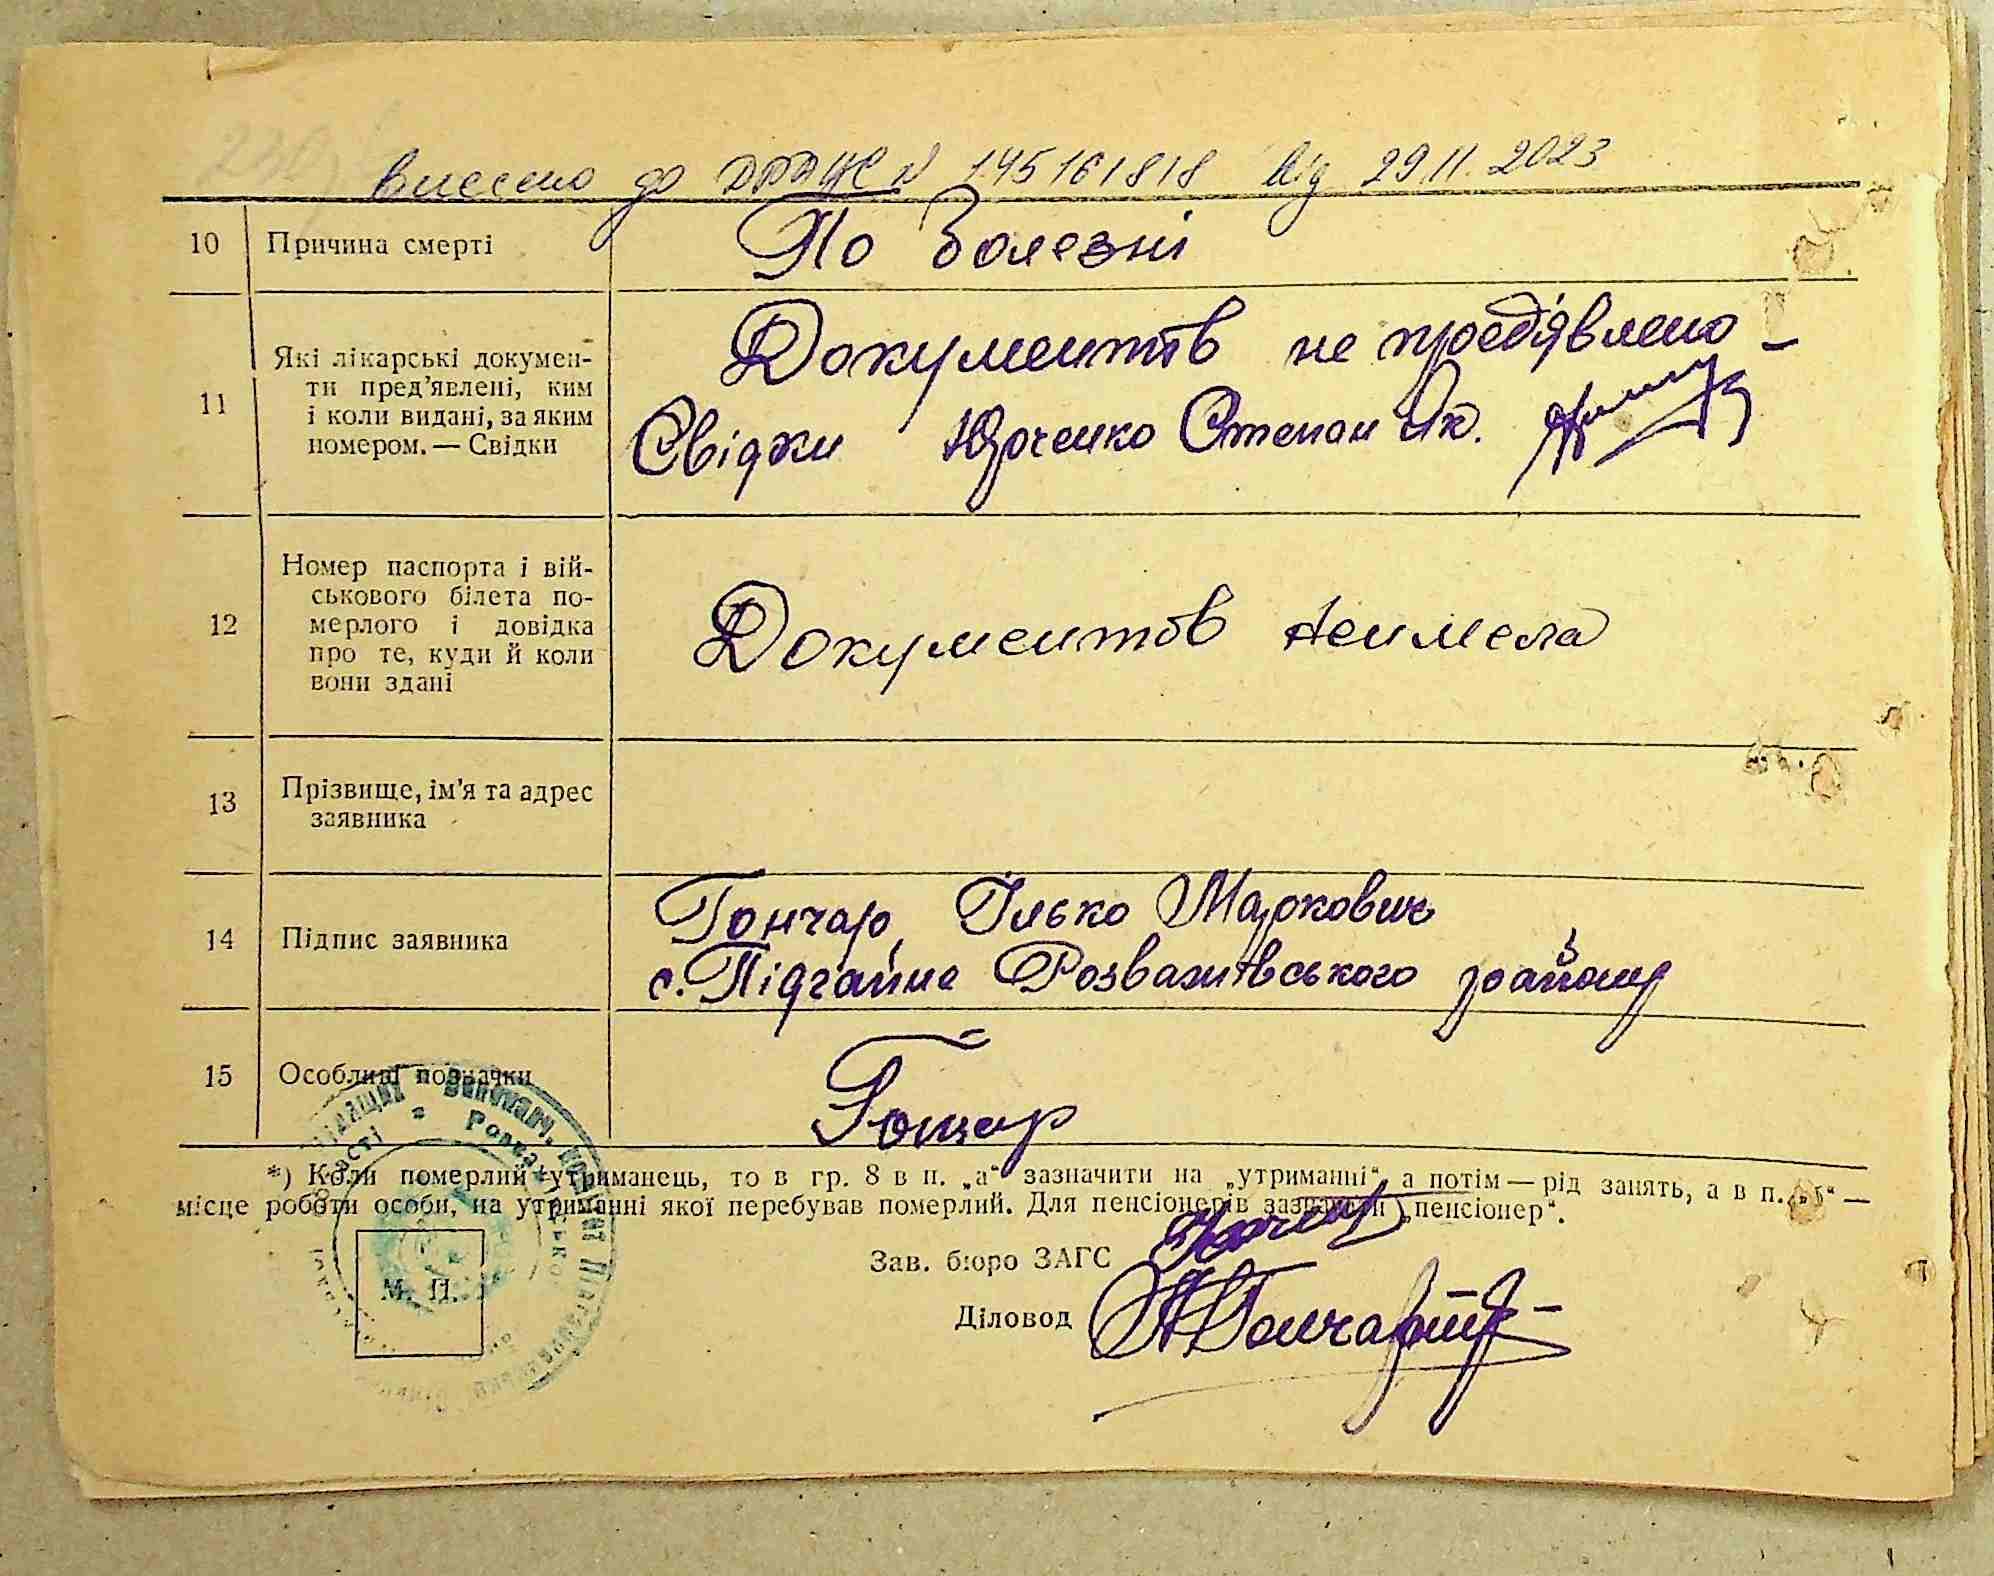 внесено до ДРАЦС № 145161818 від 29.11.2023
10 Причина смерті По болезні
11 Які лікарські докумен-
ти пред'явлені, ким
і коли видані, за яким
номером. — Свідки
Документів не предявлено —
Свідки Юрченко Степан Як.
12 Номер паспорта і вій-
ськового білета по-
мерлого і довідка
про те, куди й коли
вони здані
Документов неимела
13 Прізвище, ім'я та адрес
заявника
14 Підпис заявника
Гончар Ілько Маркович
с. Підгайне Розважівського району
15 Особливі позначки
Гонцар
*) Коли померлий утриманець, то в гр. 8 в п. „а“ зазначити на „утриманні“, а потім — рід занять, а в п. „б“ —
місце роботи особи, на утриманні якої перебував померлий. Для пенсіонерів зазначити „пенсіонер“.
Зав. бюро ЗАГС
Діловод
М. П.